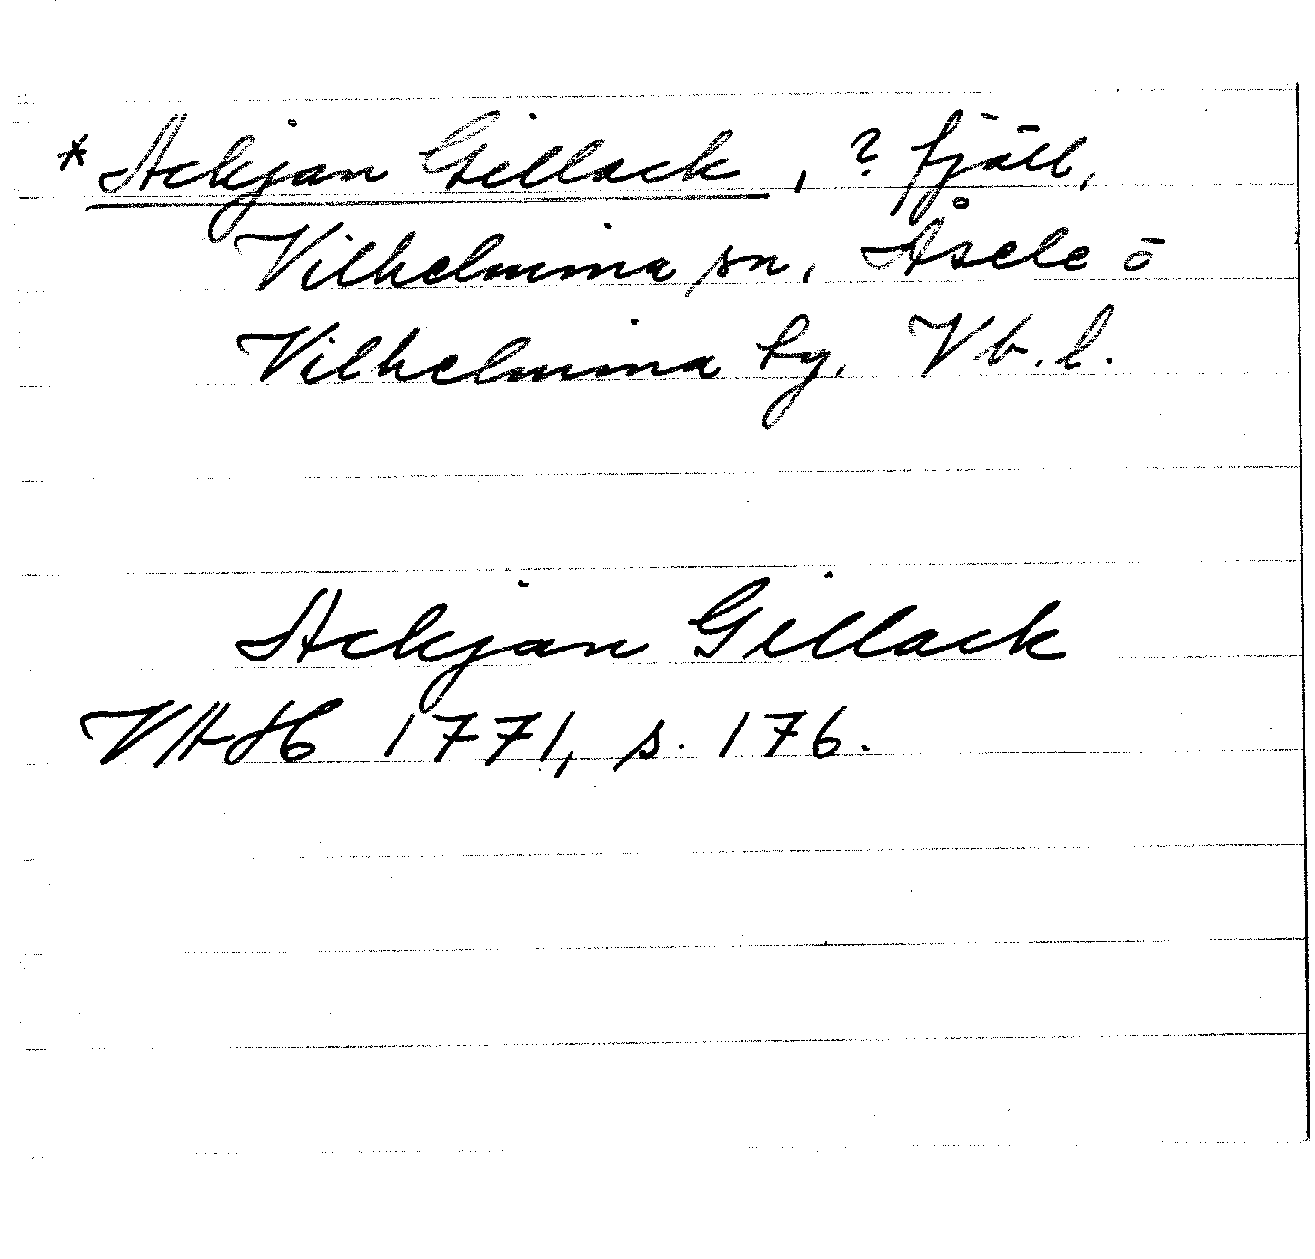 *Ackjan Gillack, ? fjäll,
Vilhelmina sn, Åsele o
Vilhelmina ty. Vb. l.
Ackjan Gillack
VAH 1771, s. 176.